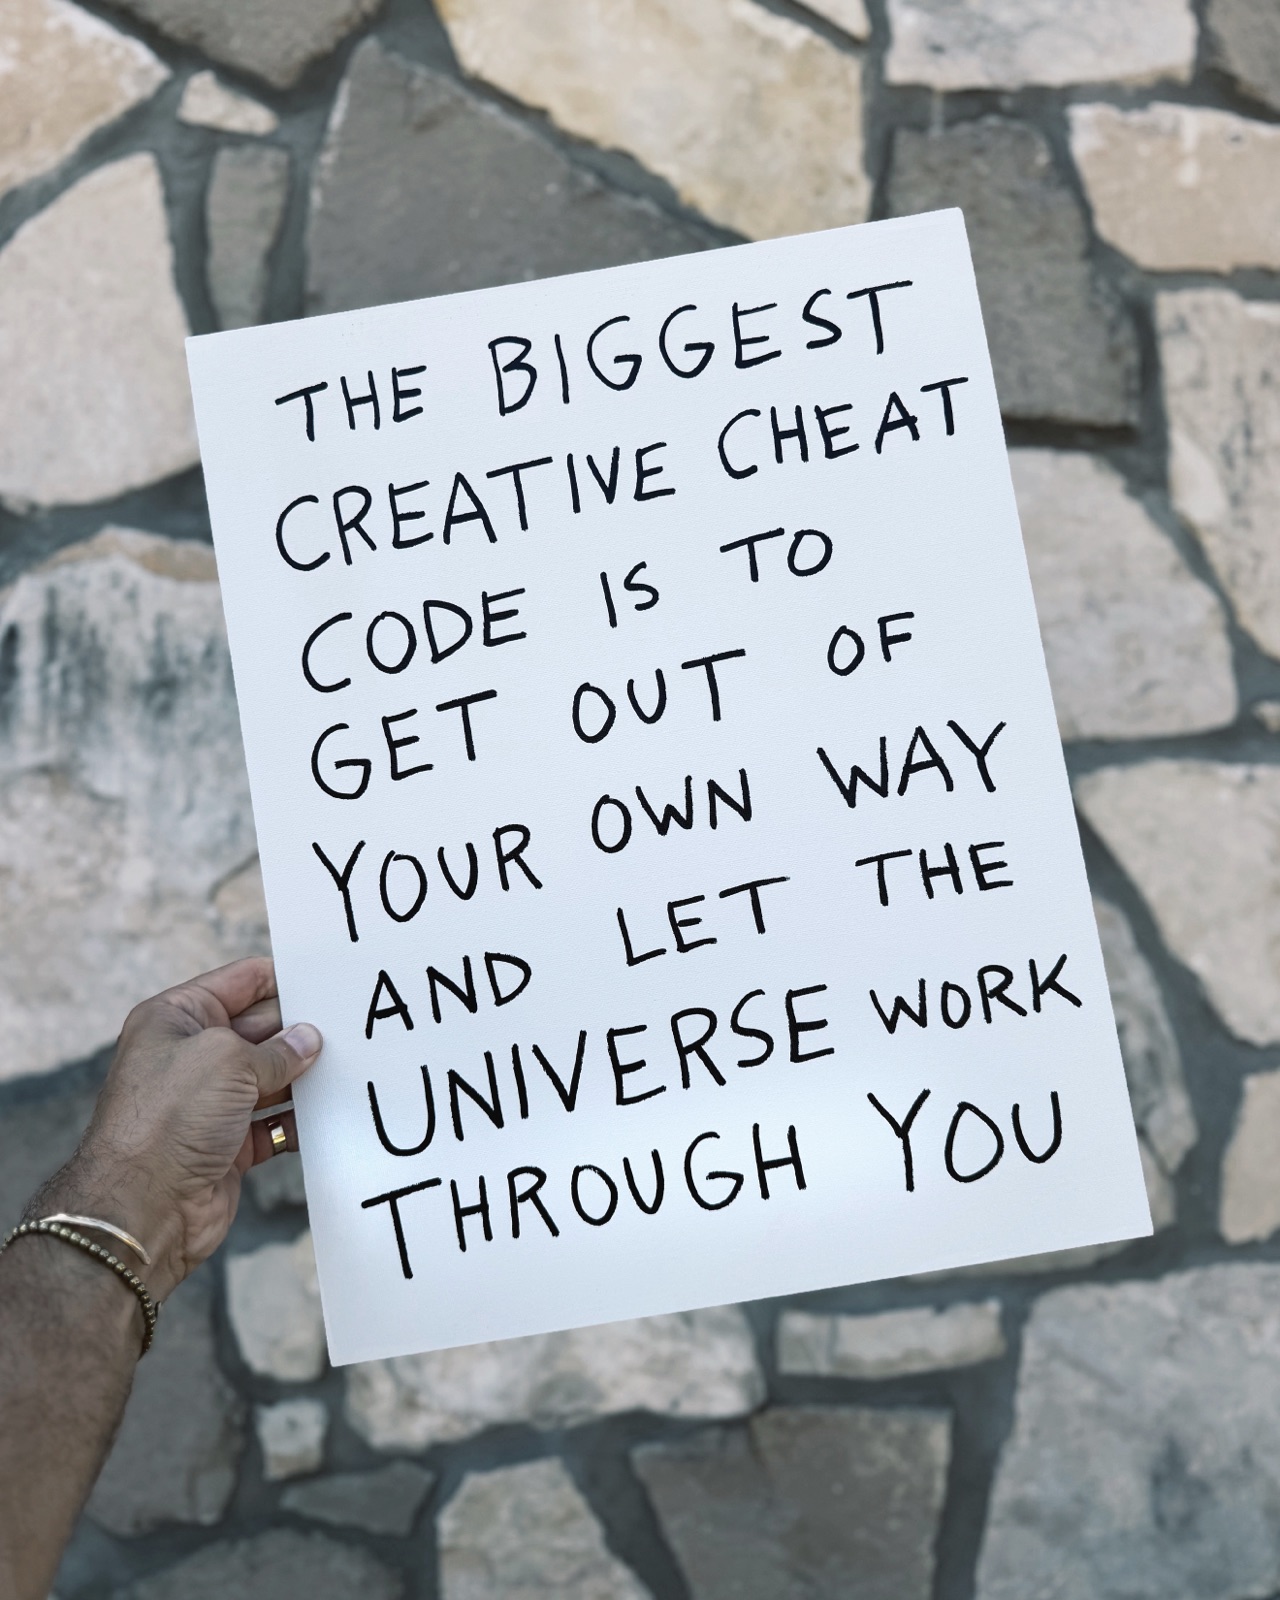 THE BIGGEST
CREATIVE CHEAT
CODE IS TO
GET OUT OF
YOUR OWN WAY
AND LET THE
UNIVERSE WORK
THROUGH YOU